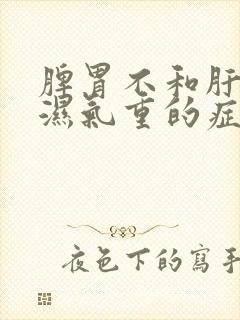 脾胃不和肝
濕氣重的症
夜色下的寫手